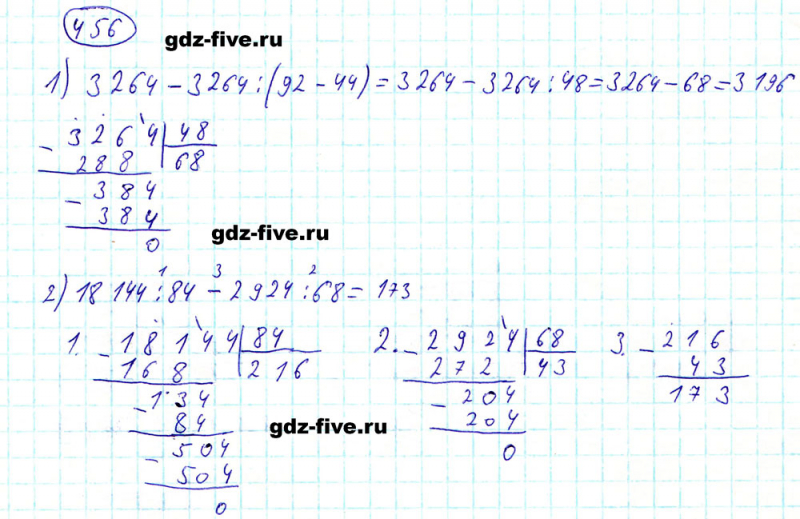 456
gdz-five.ru
1) 3264 - 3264 : (92 - 44) = 3264 - 3264 : 48 = 3264 - 68 = 3196
- 3264 | 48
288 | 68
- 384
384
0
gdz-five.ru
1 3 2
2) 18 144 : 84 - 2924 : 68 = 173
1. - 18144 | 84
168 | 216
- 134
84
- 504
504
0
2. - 2924 | 68
272 | 43
- 204
204
0
3. - 216
43
173
gdz-five.ru